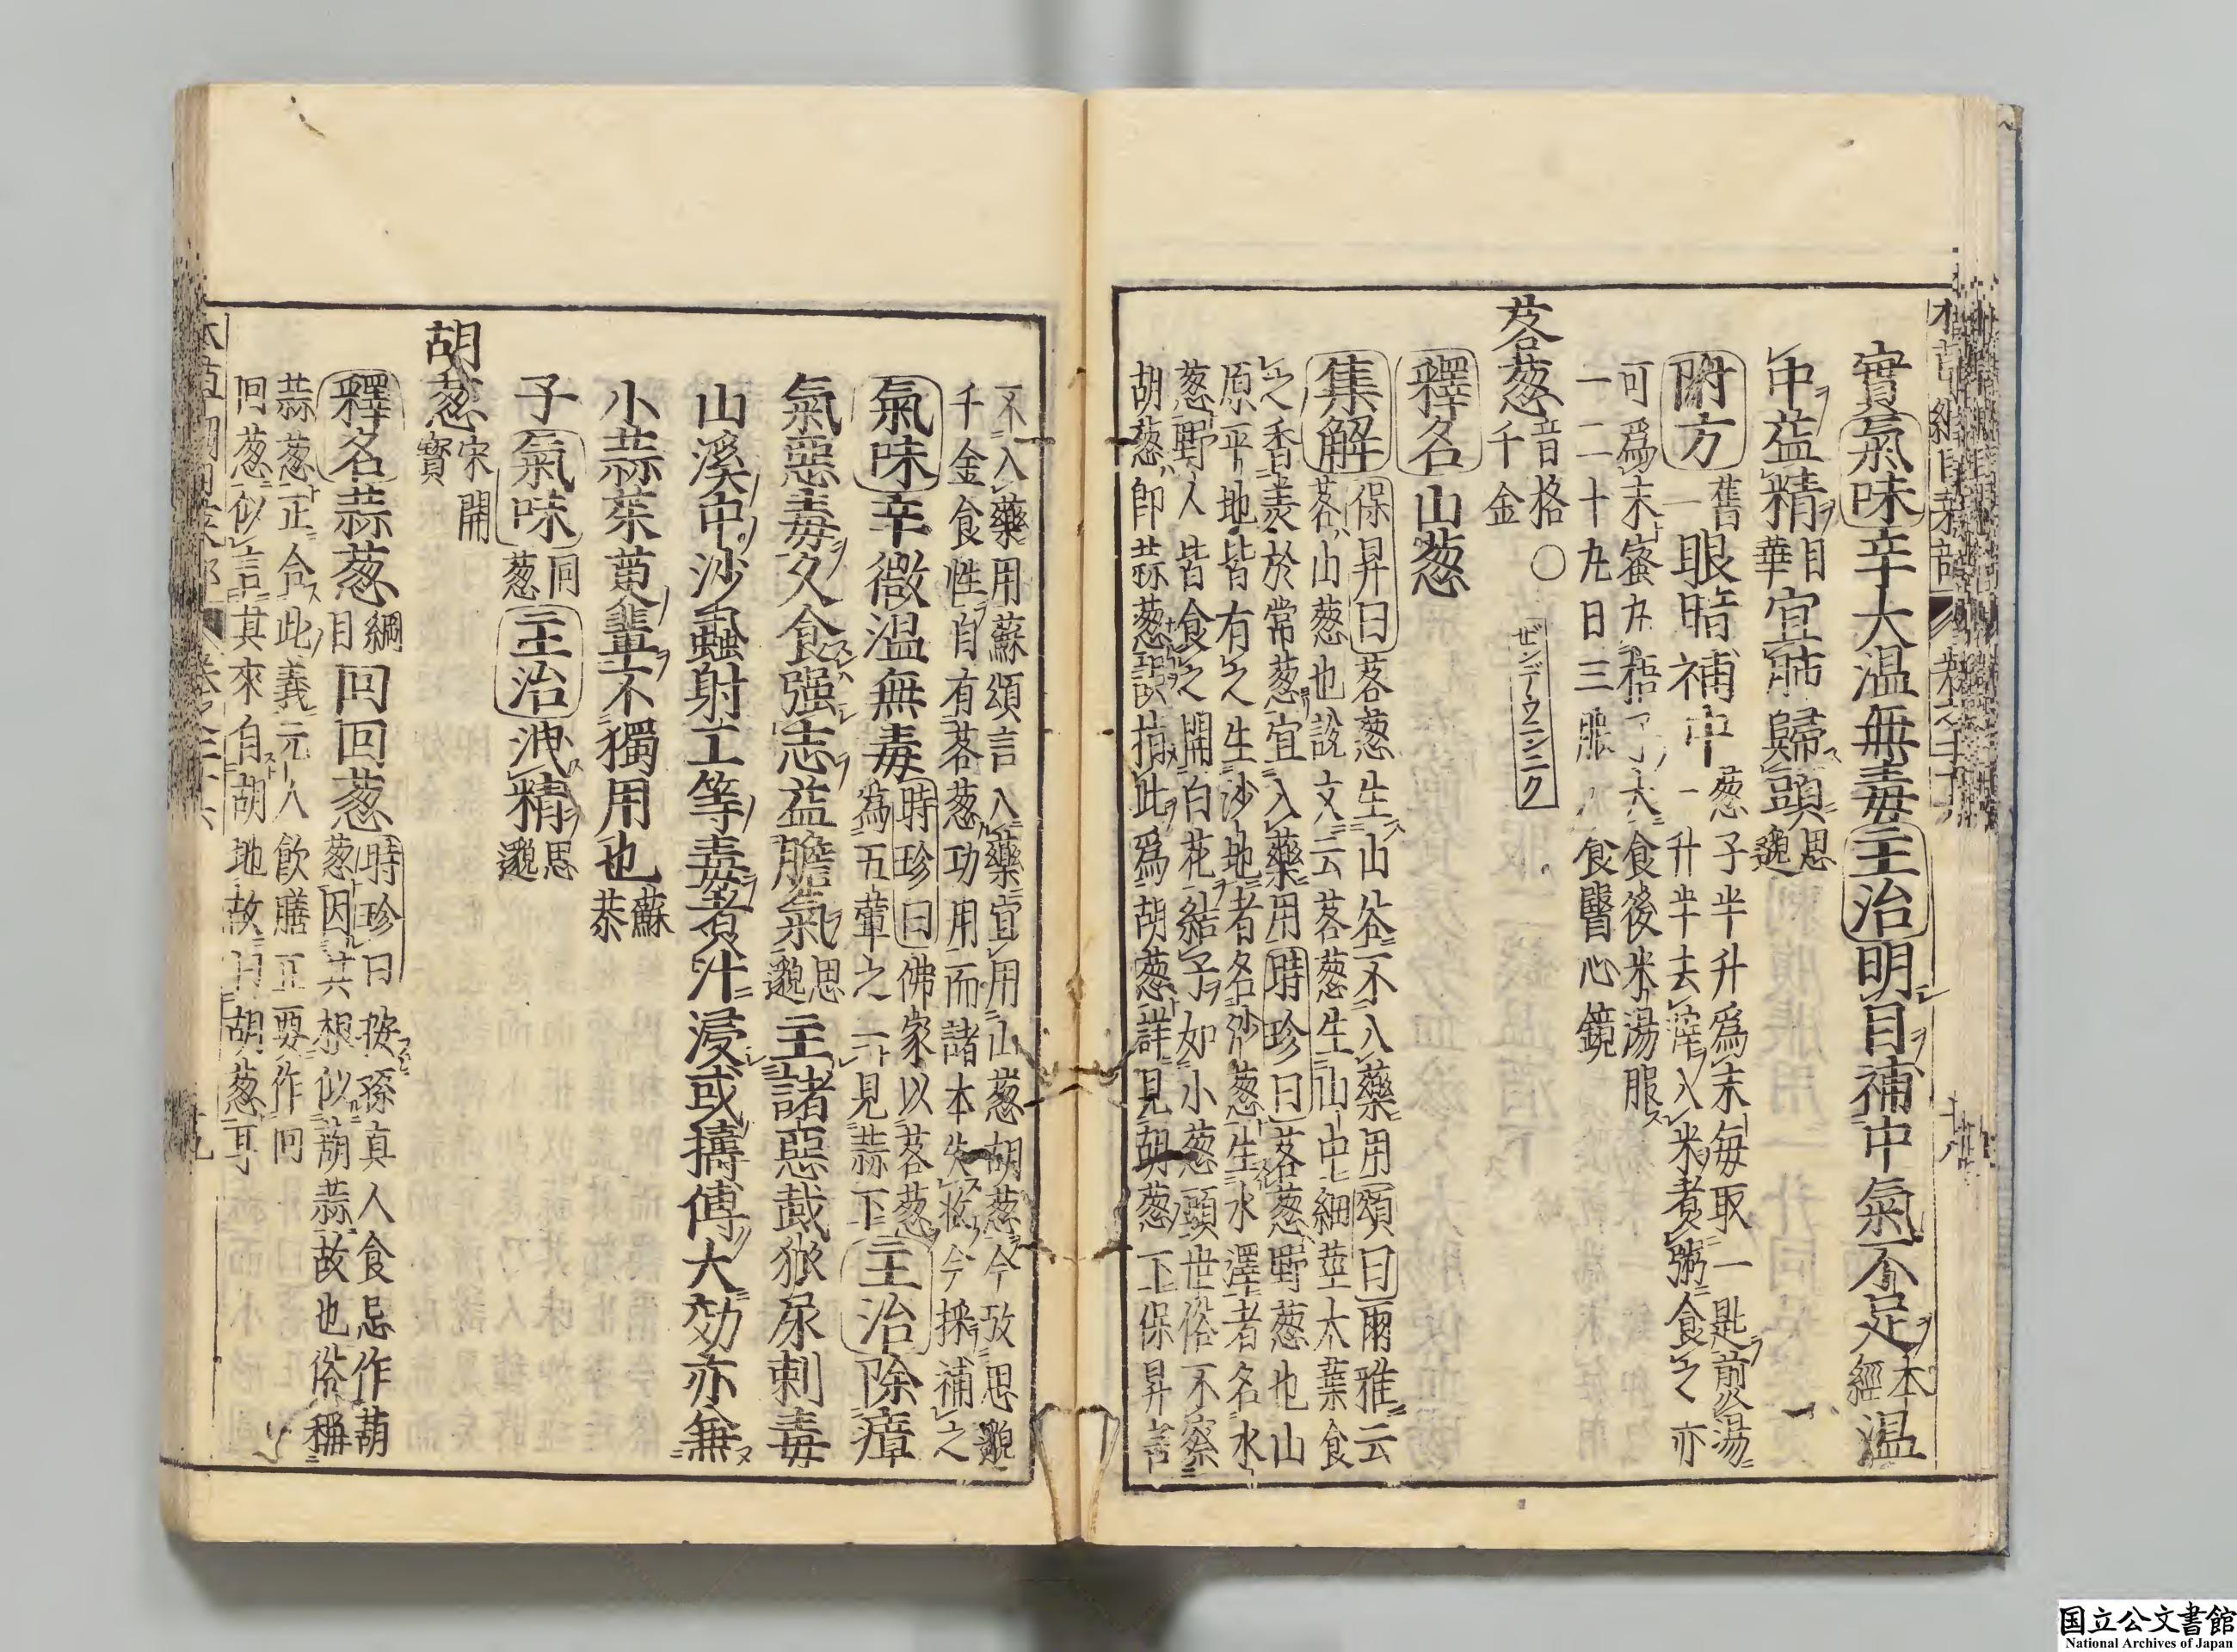 實氣味辛大溫無毒主治明目補中氣不足本經溫
中益精目華宜肺歸頭思邈
附方舊一眼暗補中葱子半升爲末每取一匙煎湯
一升半去滓入米煑粥食之亦
可爲末蜜丸梧子大食後米湯服
一二十丸日三服食醫心鏡
茖葱音格千金〇
ぜンデウニンニク
釋名山葱
集解保昇曰茖葱生山谷不入藥用頌曰爾雅云
茖山葱也說文云茖葱生山中細莖大葉食
之香美於常葱宜入藥用時珍曰茖葱野葱也山
原平地皆有之生沙地者名沙葱生水澤者名水
葱野人皆食之開白花結子如小葱頭世俗不察
胡葱即蒜葱誤指此爲胡葱詳見胡葱下保昇言
不入藥用蘇頌言入藥宜用山葱胡葱今攷思邈
千金食性自有茖葱功用而諸本失收今採補之
氣味辛微溫無毒時珍曰佛家以茖葱
為五葷之一見蒜下主治除瘴
氣惡毒久食强志益膽氣思邈主諸惡䖧狐尿刺毒
山溪中沙蝨射工等毒煑汁浸或擣傅大効亦兼
小蒜茱萸輩不獨用也蘇恭
子氣味同葱主治洩精思邈
胡葱宋開寳
釋名蒜葱綱目回回葱時珍曰按孫真人食忌作葫
葱因其根似葫蒜故也俗稱
蒜葱正合此義元人飲膳正要作回
回葱似言其來自胡地故曰胡葱耳